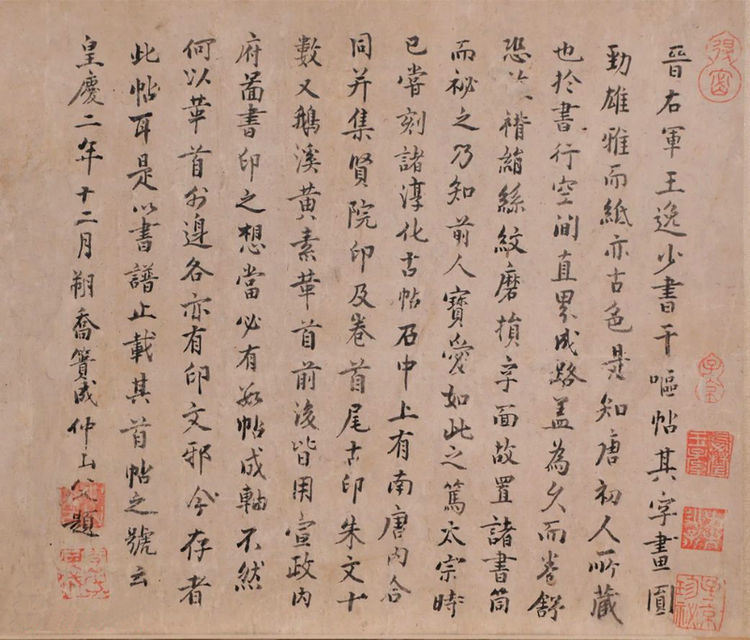 晉右軍王逸少書干嘔帖其字畫圓
勁雄雅而紙亦古色是知唐初人所藏
也於書行空间直累成路蓋為久而卷舒
恐褙綃絲紋磨損字面故置諸書筒
而祕之乃知前人寶愛如此之篤太宗時
已嘗刻諸淳化古帖石中上有南唐内合
同并集賢院印及卷首尾古印朱文十
數又鵝溪黄素革首前後皆用宣政内
府啚書印之想當必有數帖成軸不然
何以革首外邊各亦有印文邪今存者
此帖耳是以書譜止載其首帖之號云
皇慶二年十二月朔喬簣成仲山父題